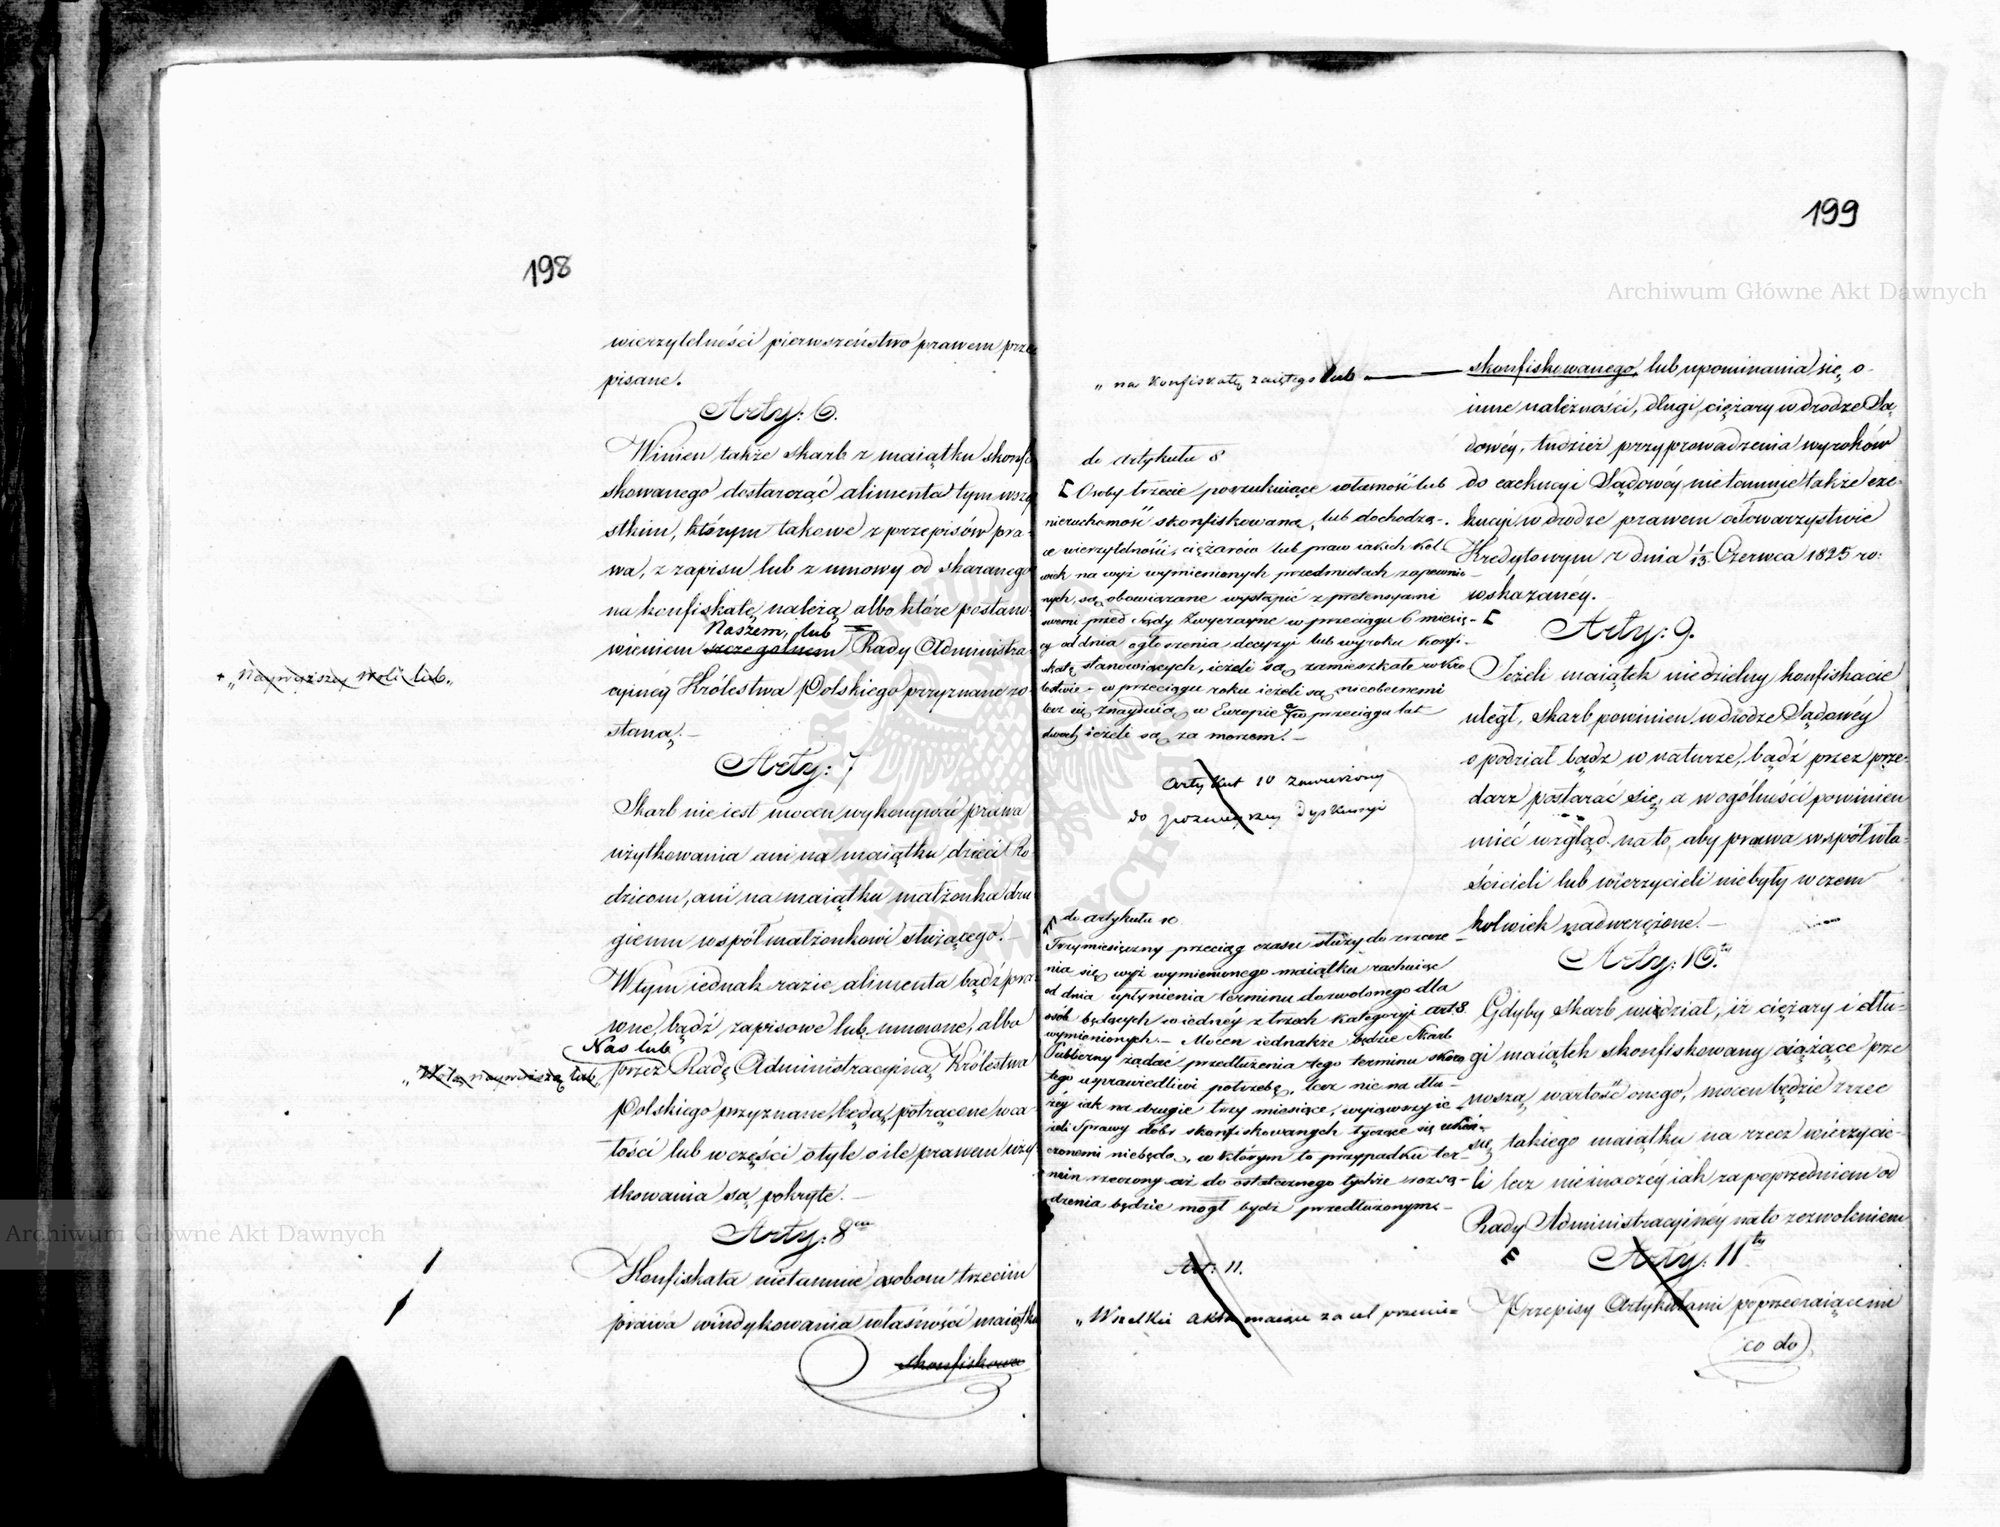 198
wierzytelności pierwszeństwo prawem prze
pisane.
Arty: 6.
Winien także skarb z maiątku skonfi
skowanego dostarczać alimenta tym wszy
stkim, którym takowe z przepisów pra-
wa, z zapisu lub z umowy od skazanego
na konfiskatę należą albo które postano-
Naszem, lub
wieniem szczegolnem Rady Administra
cyjnéy Królestwa Polskiego przyznane zo
staną.-
+ „Naywyższey woli lub„
Arty: 7
Skarb nie iest mocen wykonywać prawa
użytkowania ani na maiątku dzieci Ro-
dzicom, ani na maiątku małżonka dru
giemu współmałżonkowi służącego.-
W tym iednak razie alimenta bądź pra-
wne, bądź zapisowe lub umowne, albo
Nas lub
„Wolą naywyższą lub„
przez Radę Administracyiną Królestwa
Polskiego przyznane, będą potrącone w ca-
łości lub w części o tyle o ile prawem uży-
tkowania są pokryte.-
Arty: 8
Konfiskata nietamuie osobom trzecim
prawa windykowania własności maiątku
skonfiskowa
199
„na konfiskatę zaiętego lub
do artykułu 8
[ Osoby trzecie poszukuiące własność lub
nieruchomość skonfiskowaną, lub dochodzą-
ce wierzytelności, ciężarów lub praw iakich kol-
wiek na wyż wymienionych przedmiotach zapewnio-
nych, są obowiązane wystąpić z pretensyami
swemi przed Sądy Zwyczayne w przeciągu 6 miesię-
cy od dnia ogłoszenia decyzyi lub wyroku konfi-
skatę stanowiących, ieżeli są zamieszkałe w Kró
lestwie - w przeciągu roku ieżeli są nieobecnemi
lecz się znayduią w Europie a w przeciągu lat
dwóch ieżeli są za morzem.-
Artykuł 10 zawieszony
do dyskussyi
do artykułu 10
Trzymiesięczny przeciąg czasu służy do zrzecze-
nia się wyż wymienionego maiątku rachuiąc
od dnia upłynienia terminu dozwolonego dla
osób będących w iednéy z trzech kategoryi art. 8.
wymienionych.- Mocen iednakże będzie Skarb
Publiczny żądać przedłużenia tego terminu skoro
tego usprawiedliwi potrzebę, lecz nie na dłu-
żéy iak na drugie trzy miesiące, wyiąwszy ie
żeli Sprawy dóbr skonfiskowanych tyczące się ukoń-
czonemi niebędą, w którym to przypadku ter-
min rzeczony aż do ostatecznego tychże rozsą-
dzenia będzie mógł bydź przedłużonym.-
Art: 11.
„Wszelkie akta maiące za cel przenie-
skonfiskowanego, lub upominania się o
inne należności, długi, ciężary w drodze Są
dowéy, tudzież przyprowadzenia wyroków
do exekucyi Sądowéy nietamuie także exe-
kucyi w drodze prawem o Towarzystwie
Kredytowym z dnia 1/13 Czerwca 1825 ro:
wskazanéy.
[
Arty: 9.
Jeżeli maiątek niedzielny konfiskacie
uległ, skarb powinien w drodze Sądowéy
o podział bądź w naturze, bądź przez prze-
darz postarać się, a w ogólności powinien
mieć wzgląd na to, aby prawa współwła-
ścicieli lub wierzycieli niebyły w czem
kolwiek nadwerężone.-
Arty: 10.ty
Gdyby Skarb widział, iż ciężary i dłu-
gi maiątek skonfiskowany ciążące prze
noszą wartość onego, mocen będzie zrzec
się takiego maiątku na rzecz wierzycie-
li lecz nieinaczéy iak za poprzedniem od
Rady Administracyinéy na to zezwoleniem
[
Arty: 11ty
Przepisy Artykułami poprzedzaiącemi
co do
Archiwum Główne Akt Dawnych
Archiwum Główne Akt Dawnych